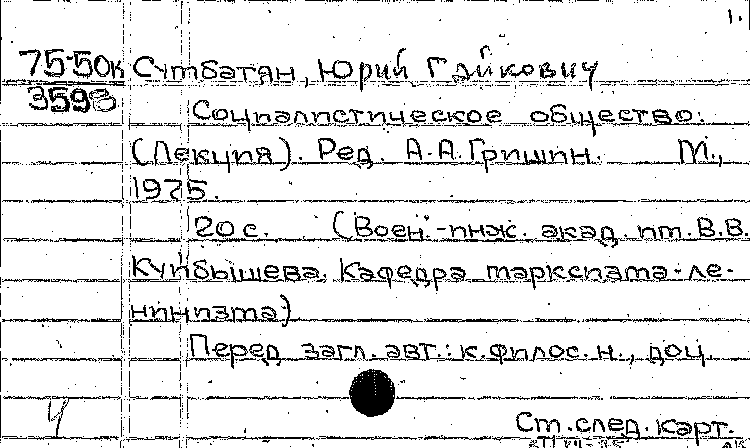 1.
75-50к Сумбатян, Юрий Гайкович
3598
Социалистическое общество.
(Лекция). Ред. А.А.Гришин. М.,
1975.
20 с. (Воен.-инж. акад. им. В.В.
Куйбышева. Кафедра марксизма-ле-
нинизма)
Перед загл. авт.: к.филос.н., доц.
4
См.след.карт.